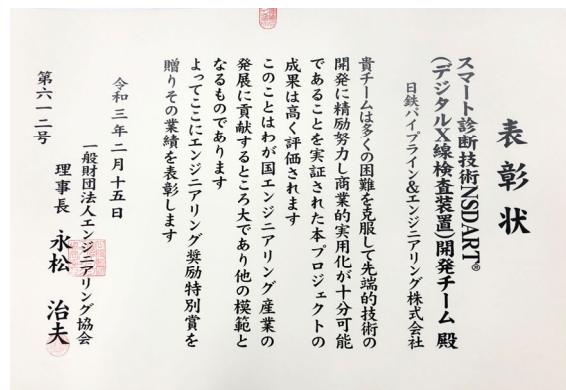 表彰状
スマート診断技術NSDART®
(デジタルX線検査装置)開発チーム 殿
日鉄パイプライン&エンジニアリング株式会社
貴チームは多くの困難を克服して先端的技術の
開発に精励努力し商業的実用化が十分可能
であることを実証された本プロジェクトの
成果は高く評価されます
このことはわが国エンジニアリング産業の
発展に貢献するところ大であり他の模範と
なるものであります
よってここにエンジニアリング奨励特別賞を
贈りその業績を表彰します
令和三年二月十五日
一般財団法人エンジニアリング協会
理事長 永松 治夫
第六一二号